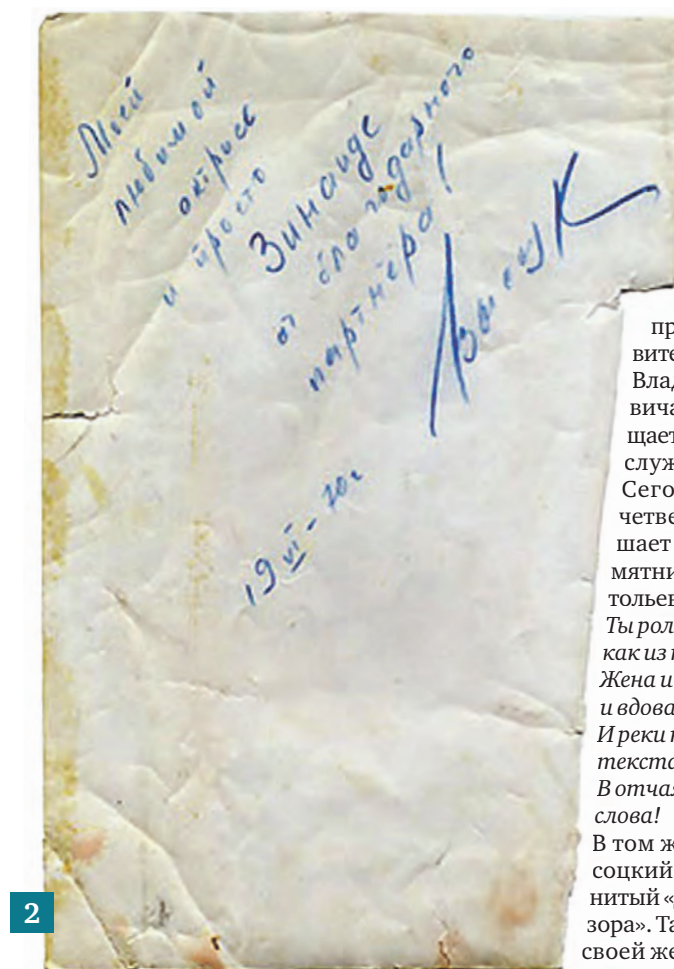 Моей
любимой
актрисе
и просто
Зинаиде
от благодарного
партнёра!
Высоцк
19 VI - 70г
пр
вите
Влад
вича
щает
служ
Сего
четве
шает
мятни
тольев
Ты рол
как из
Жена и
и вдова
И реки
текста
В отча
слова!
В том ж
соцкий
нитый «
зора». Та
своей же
2